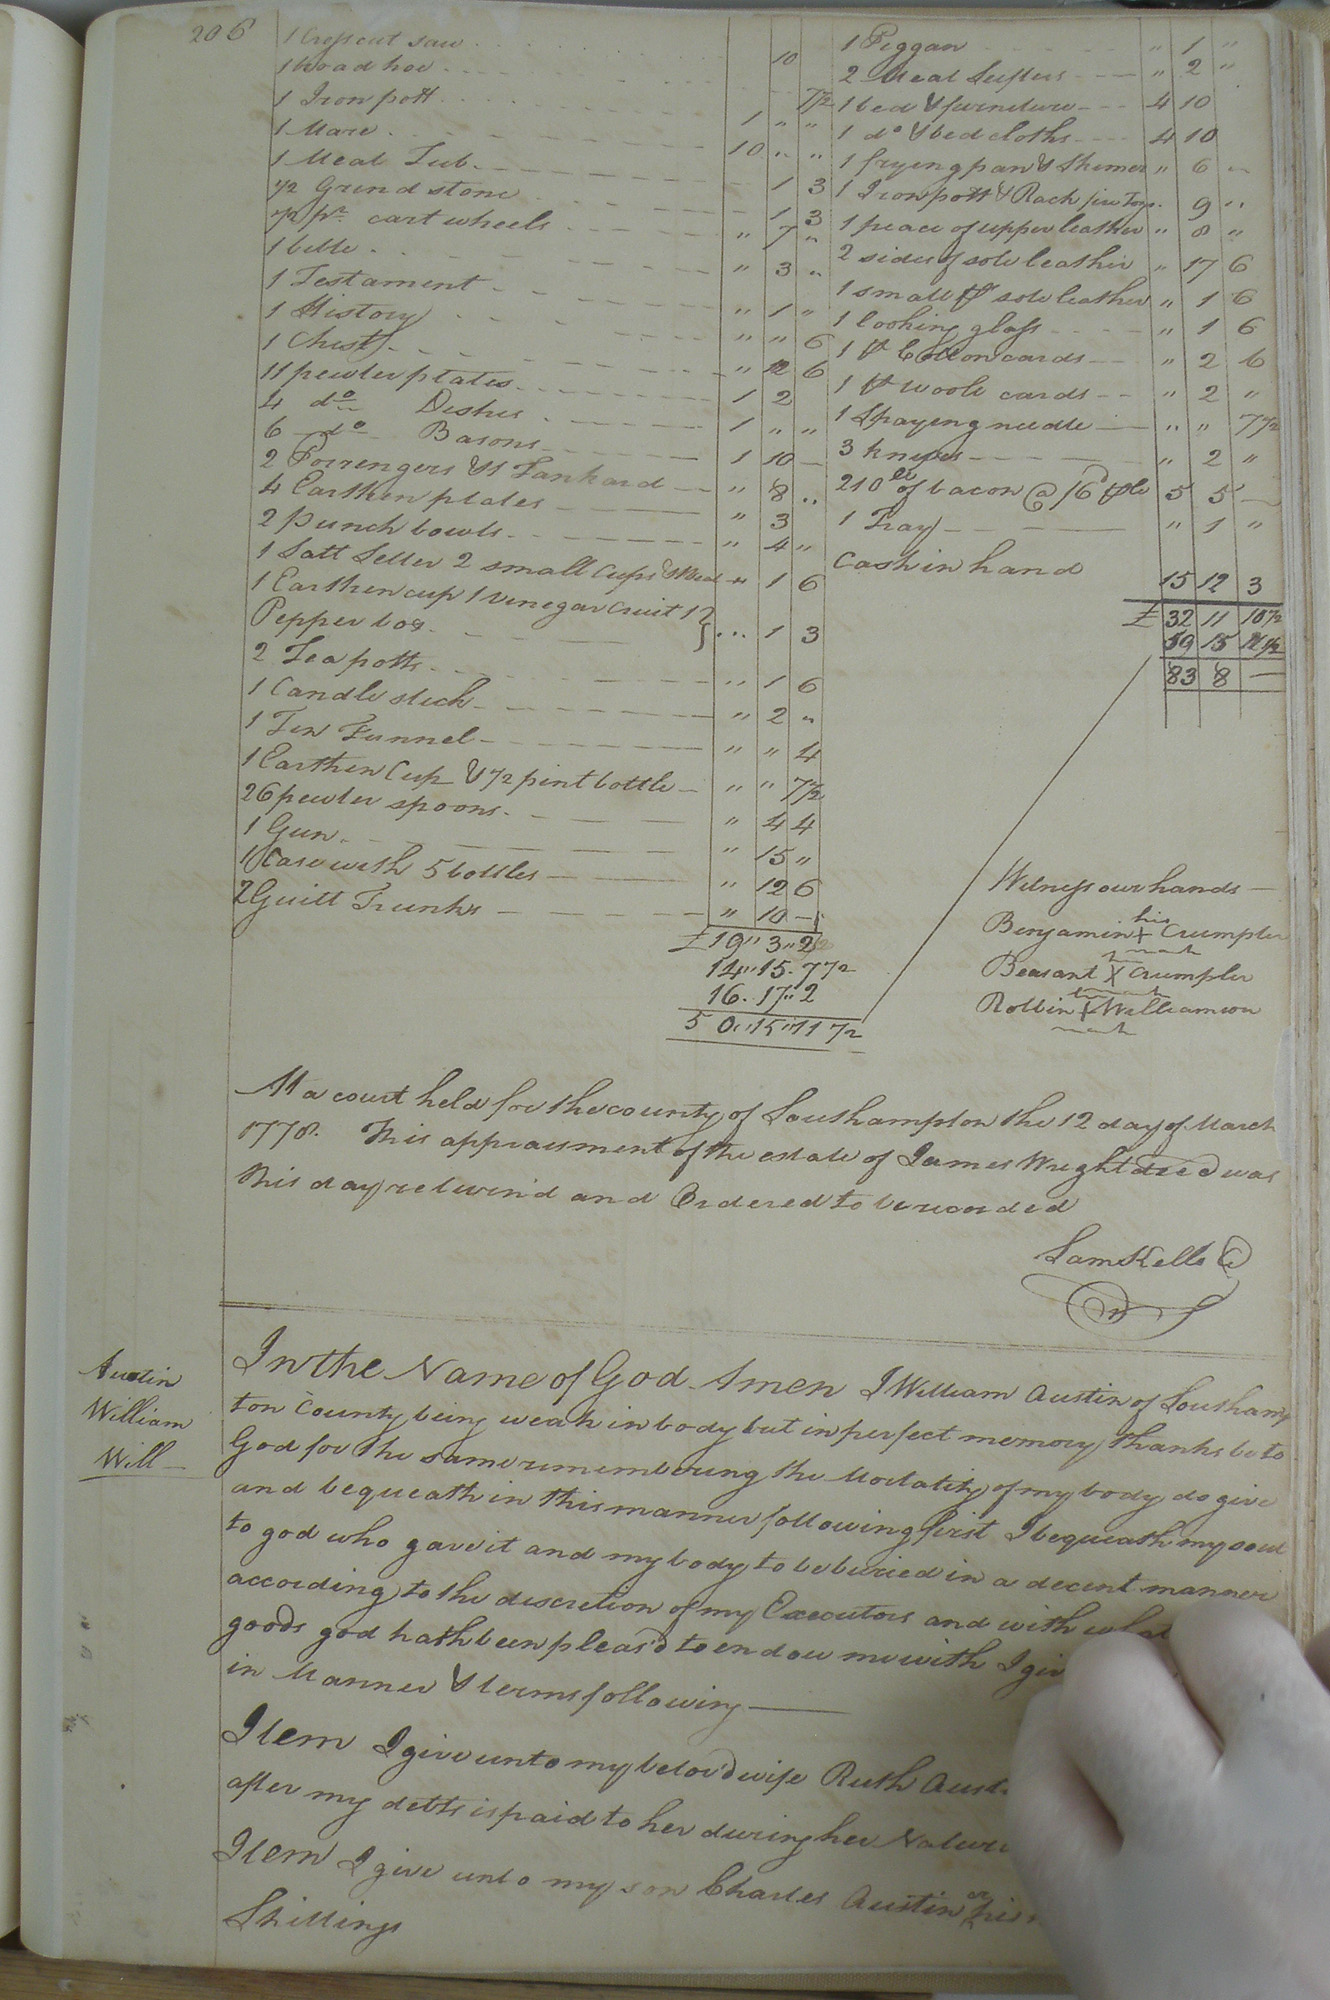 206
1 Cross cut saw 10
1 broad hoe
1 Iron pott 7 1/2
1 Mare 1 " "
1 Meal Tub 10 " "
1/2 Grind stone 1 3
1/2 pr. cart wheels 1 3
1 belle " 7 "
1 Testament " 3 "
1 History " 1 "
1 Chest " " 6
11 pewter plates " 12 6
4 do Dishes 1 2
6 do Basons 1 " "
2 Porrengers & 1 Tankard 1 10 —
4 Earthen plates " 8 "
2 Punch bowls " 3
1 Salt Seller 2 small cups & " 4 "
1 Earthen cup 1 vinegar Cruit 1 " 1 6
Pepper box 1 3
2 Tea potts
1 Candle stick " 1 6
1 Tin Funnel " 2 "
1 Earthen Cup & 1/2 pint bottle " " 4
26 pewter spoons " " 7 1/2
1 Gun " 4 4
1 Case with 5 bottles " 15 "
2 Guilt Trunks " 12 6
" 10 —
£ 19 " 3 " 2
14 " 15 . 7 1/2
16 . 17 " 2
50 " 15 " 11 1/2
1 Piggan " 1 "
2 Meal Sifters " 2 "
1 bed & furneture 4 10
1 do & bed cloths 4 10
1 frying pan & Skemer " 6 "
1 Iron pott & Rack 9 "
1 peace of upper leather " 8 "
2 sides of sole leather " 17 6
1 small ps sole leather " 1 6
1 looking glass " 1 6
1 pr Cotton cards " 2 6
1 pr woole cards " 2 "
1 Spayeing needle " " 7 1/2
3 knives " 2 "
210 lb of bacon @ /6 pr lb 5 5 —
1 Tray " 1 "
Cash in hand 15 12 3
£ 32 11 10 1/2
15 11 1/2
83 8 —
Witness our hands —
Benjamin his X mark Crumpler
Beasant his X mark Crumpler
Robbin his X mark Williamson
At a court held for the county of Southampton the 12 day of March
1778. This appraisment of the estate of James Wright decd was
this day return'd and Ordered to be recorded
Sam Kello C
Austin
William
Will —
In the Name of God Amen I William Austin of Southamp
ton County being weak in body but in perfect memory thanks be to
God for the same remembering the Mortality of my body do give
and bequeath in this manner following first I bequeath my soul
to god who gave it and my body to be buried in a decent manner
according to the discretion of my Executors and with what
goods god hath been pleas'd to endow me with I giv
in Manner & terms following —
Item I give unto my belov'd wife Ruth Aust
after my debts is paid to her during her Natur
Item I give unto my son Charles Austin or his
Shillings